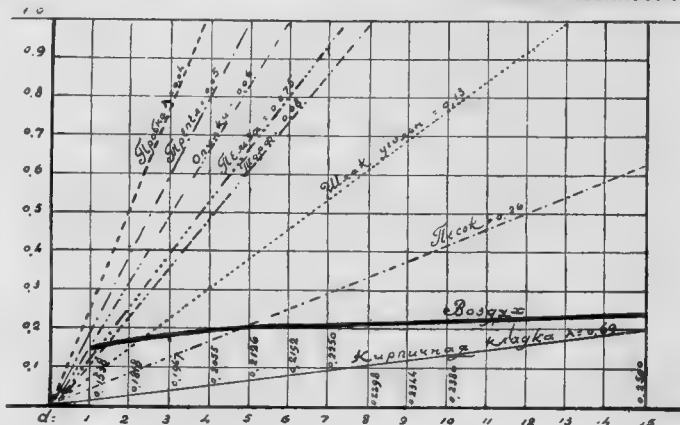 1.0
0,9
0,8
0,7
0,6
0,5
0,4
0,3
0,2
0,1
Пробка λ=0.04
Трепел=0.05
Опилки=0.06
=0.075
Торф=0.08
Шлак угольн=0.13
Песок=0.26
Воздух
Кирпичная кладка λ=0.69
0,1538
0,1818
0,2055
0,2126
0,2192
0,2250
0,2298
0,2344
0,2380
0,2500
d: 1 2 3 4 5 6 7 8 9 10 11 12 13 14 15